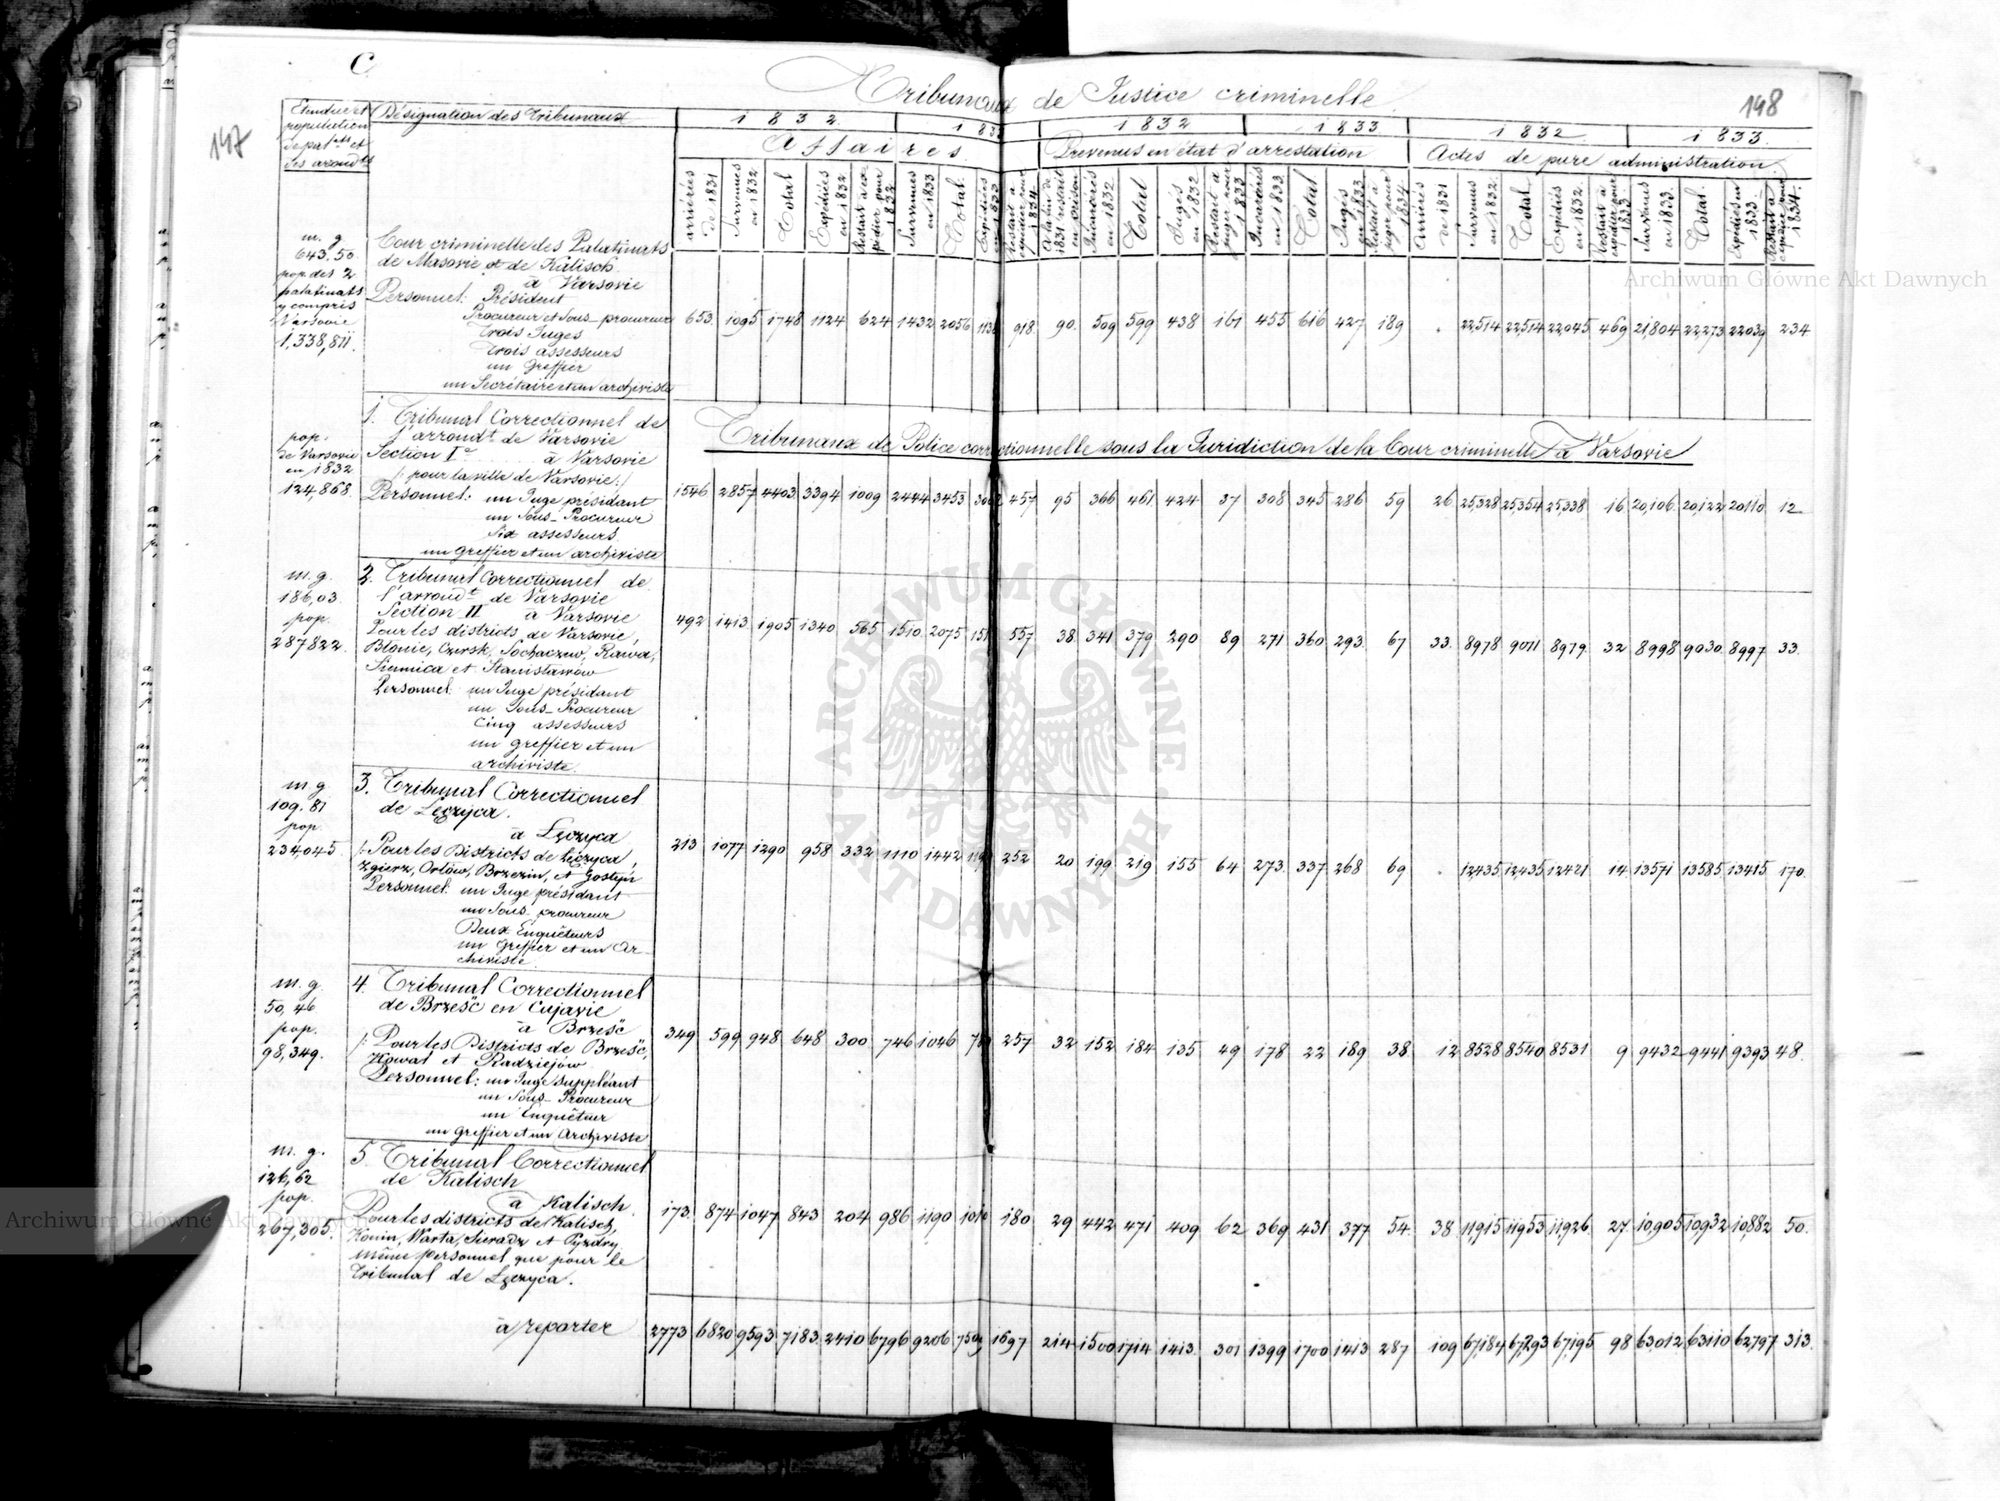 C
Tribunaux de Justice criminelle
147
148
Etendue et
population
de palats et
des arondts
Désignation des Tribunaux
1832.
1833
1832
1833
1832
1833.
Affaires
Prevenus en état d'arrestation
Actes de pure administration.
arriérées de 1831
Survenues en 1832
Total
Expédiées en 1832
Restant à expédier pour 1832
Survenues en 1833
Total.
Expédiées en 1833
Restant à expédier pour 1834
A la fin de 1831 restait en prison
Incarcérés en 1832
Total
Jugés en 1832
Restant à juger pour 1833
Incarcérés en 1833
Total
Jugés en 1833
Restait à juger pour 1834
Arriérés de 1831
Survenus en 1832.
Total
Expédiés en 1832
Restant à expédier pour 1833
Survenus en 1833.
Total.
Expédiés en 1833
Restant à expédier pour 1834.
m. g.
643.50
pop. des 2
palatinats
y compris
Varsovie
1,338,811.
Cour criminelle des Palatinats
de Masovie et de Kalisch.
à Varsovie
Personnel: Président
Procureur et Sous-procureur
Trois Juges
Trois assesseurs
un Greffier
un Secrétaire et un archiviste
653. 1095 1748 1124 624 1432 2056 918. 90. 509 599 438 161 455 616 427 189 . 22,514 22,514 22,045 469 21,804 22,273 22039 234
Tribunaux de Police correctionnelle sous la Juridiction de la Cour criminelle à Varsovie
pop.
de Varsovie
en 1832
124,868.
1. Tribunal Correctionnel de
l'arrondt de Varsovie
Section Ie à Varsovie
/: pour la ville de Varsovie:/
Personnel: un Juge présidant
un Sous-Procureur
Six assesseurs.
un greffier et un archiviste
1546 2857 4403 3394 1009 2444 3453 457 95 366 461 424 37 308 345 286 59 26 25,328 25,354 25,338 16 20,106. 20,122 20110 12
m. g.
186,03.
pop.
287822.
2. Tribunal Correctionnel de
l'arrondt de Varsovie
Section II à Varsovie
Pour les districts de Varsovie,
Błonie, Czersk, Sochaczew, Rawa,
Siennica et Stanisławów
Personnel: un Juge présidant
un Sous-Procureur
Cinq assesseurs
un greffier et un
archiviste.
492 1413 1905 1340 565 1510 2075 557 38. 341 379 290 89 271 360 293. 67 33. 8978 9011 8979. 32 8998 9030. 8997 33.
m. g
109.81
pop.
234,045.
3. Tribunal Correctionnel
de Lęczyca.
à Lęczyca
/: Pour les Districts de Lęczyca,
Zgierz, Orłów, Brzezin, et Gostyń
Personnel: un Juge présidant
un Sous-procureur
Deux Enquêteurs
un Greffier et un Ar-
chiviste
213 1077 1290 958 332 1110 1442 252 20 199 219 155 64 273. 337 268 69 . 12,435 12,435 12421 14. 13571 13585 13415 170.
m. g.
50,46
pop.
98,349.
4. Tribunal Correctionnel
de Brześć en Cujavie
à Brześć
/: Pour les Districts de Brześć,
Kowal et Radziejów
Personnel: un Juge suppléant
un Sous-Procureur
un Enquêteur
un Greffier et un Archiviste.
349 599 948 648 300 746 1046 257 32 152 184 135 49 178 22 189 38. 12 8528 8540 8531 9 9432 9441 9393 48.
m. g.
126,62
pop.
267,305.
5. Tribunal Correctionnel
de Kalisch
à Kalisch.
Pour les districts de Kalisch,
Konin, Warta, Sieradz et Pyzdry
même personnel que pour le
Tribunal de Lęczyca.
173. 874 1047 843 204 986 1190 1010 180 29 442 471 409 62 369 431 377 54. 38 11,915 11,953 11,926. 27. 10,905 10,932 10,882 50.
à reporter
2773 6820 9593 7183 2410 6796 9206 7509 1697 214 1500 1714 1413. 301 1399 1700 1413 287 109 67,184 67,293 67,195 98 63,012 63110 62,797 313.
Archiwum Główne Akt Dawnych
ARCHIWUM GŁÓWNE AKT DAWNYCH
Archiwum Główne Akt Dawnych